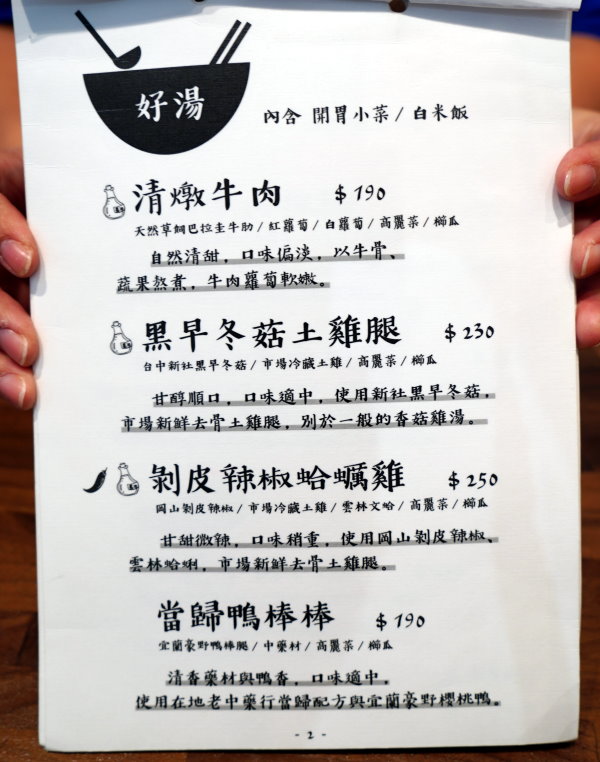 好湯
內含 開胃小菜 / 白米飯
清燉牛肉 $190
天然草飼巴拉圭牛肋 / 紅蘿蔔 / 白蘿蔔 / 高麗菜 / 櫛瓜
自然清甜，口味偏淡，以牛骨、
蔬果熬煮，牛肉蘿蔔軟嫩。
黑早冬菇土雞腿 $230
台中新社黑早冬菇 / 市場冷藏土雞 / 高麗菜 / 櫛瓜
甘醇順口，口味適中，使用新社黑早冬菇，
市場新鮮去骨土雞腿，別於一般的香菇雞湯。
剝皮辣椒蛤蠣雞 $250
岡山剝皮辣椒 / 市場冷藏土雞 / 雲林文蛤 / 高麗菜 / 櫛瓜
甘甜微辣，口味稍重，使用岡山剝皮辣椒、
雲林蛤蜊，市場新鮮去骨土雞腿。
當歸鴨棒棒 $190
宜蘭豪野鴨棒腿 / 中藥材 / 高麗菜 / 櫛瓜
清香藥材與鴨香，口味適中，
使用在地老中藥行當歸配方與宜蘭豪野櫻桃鴨。
- 2 -